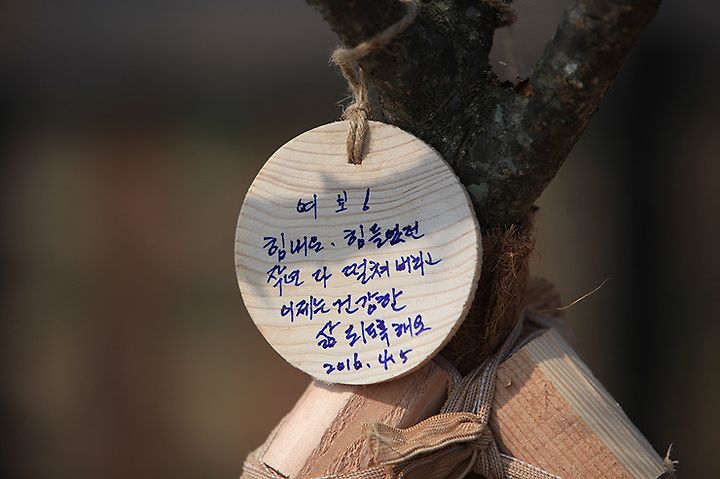 여보!
힘내요. 힘들었던
작년 다 떨쳐버리고
이제는 건강한
삶 되도록해요
2016. 4.5